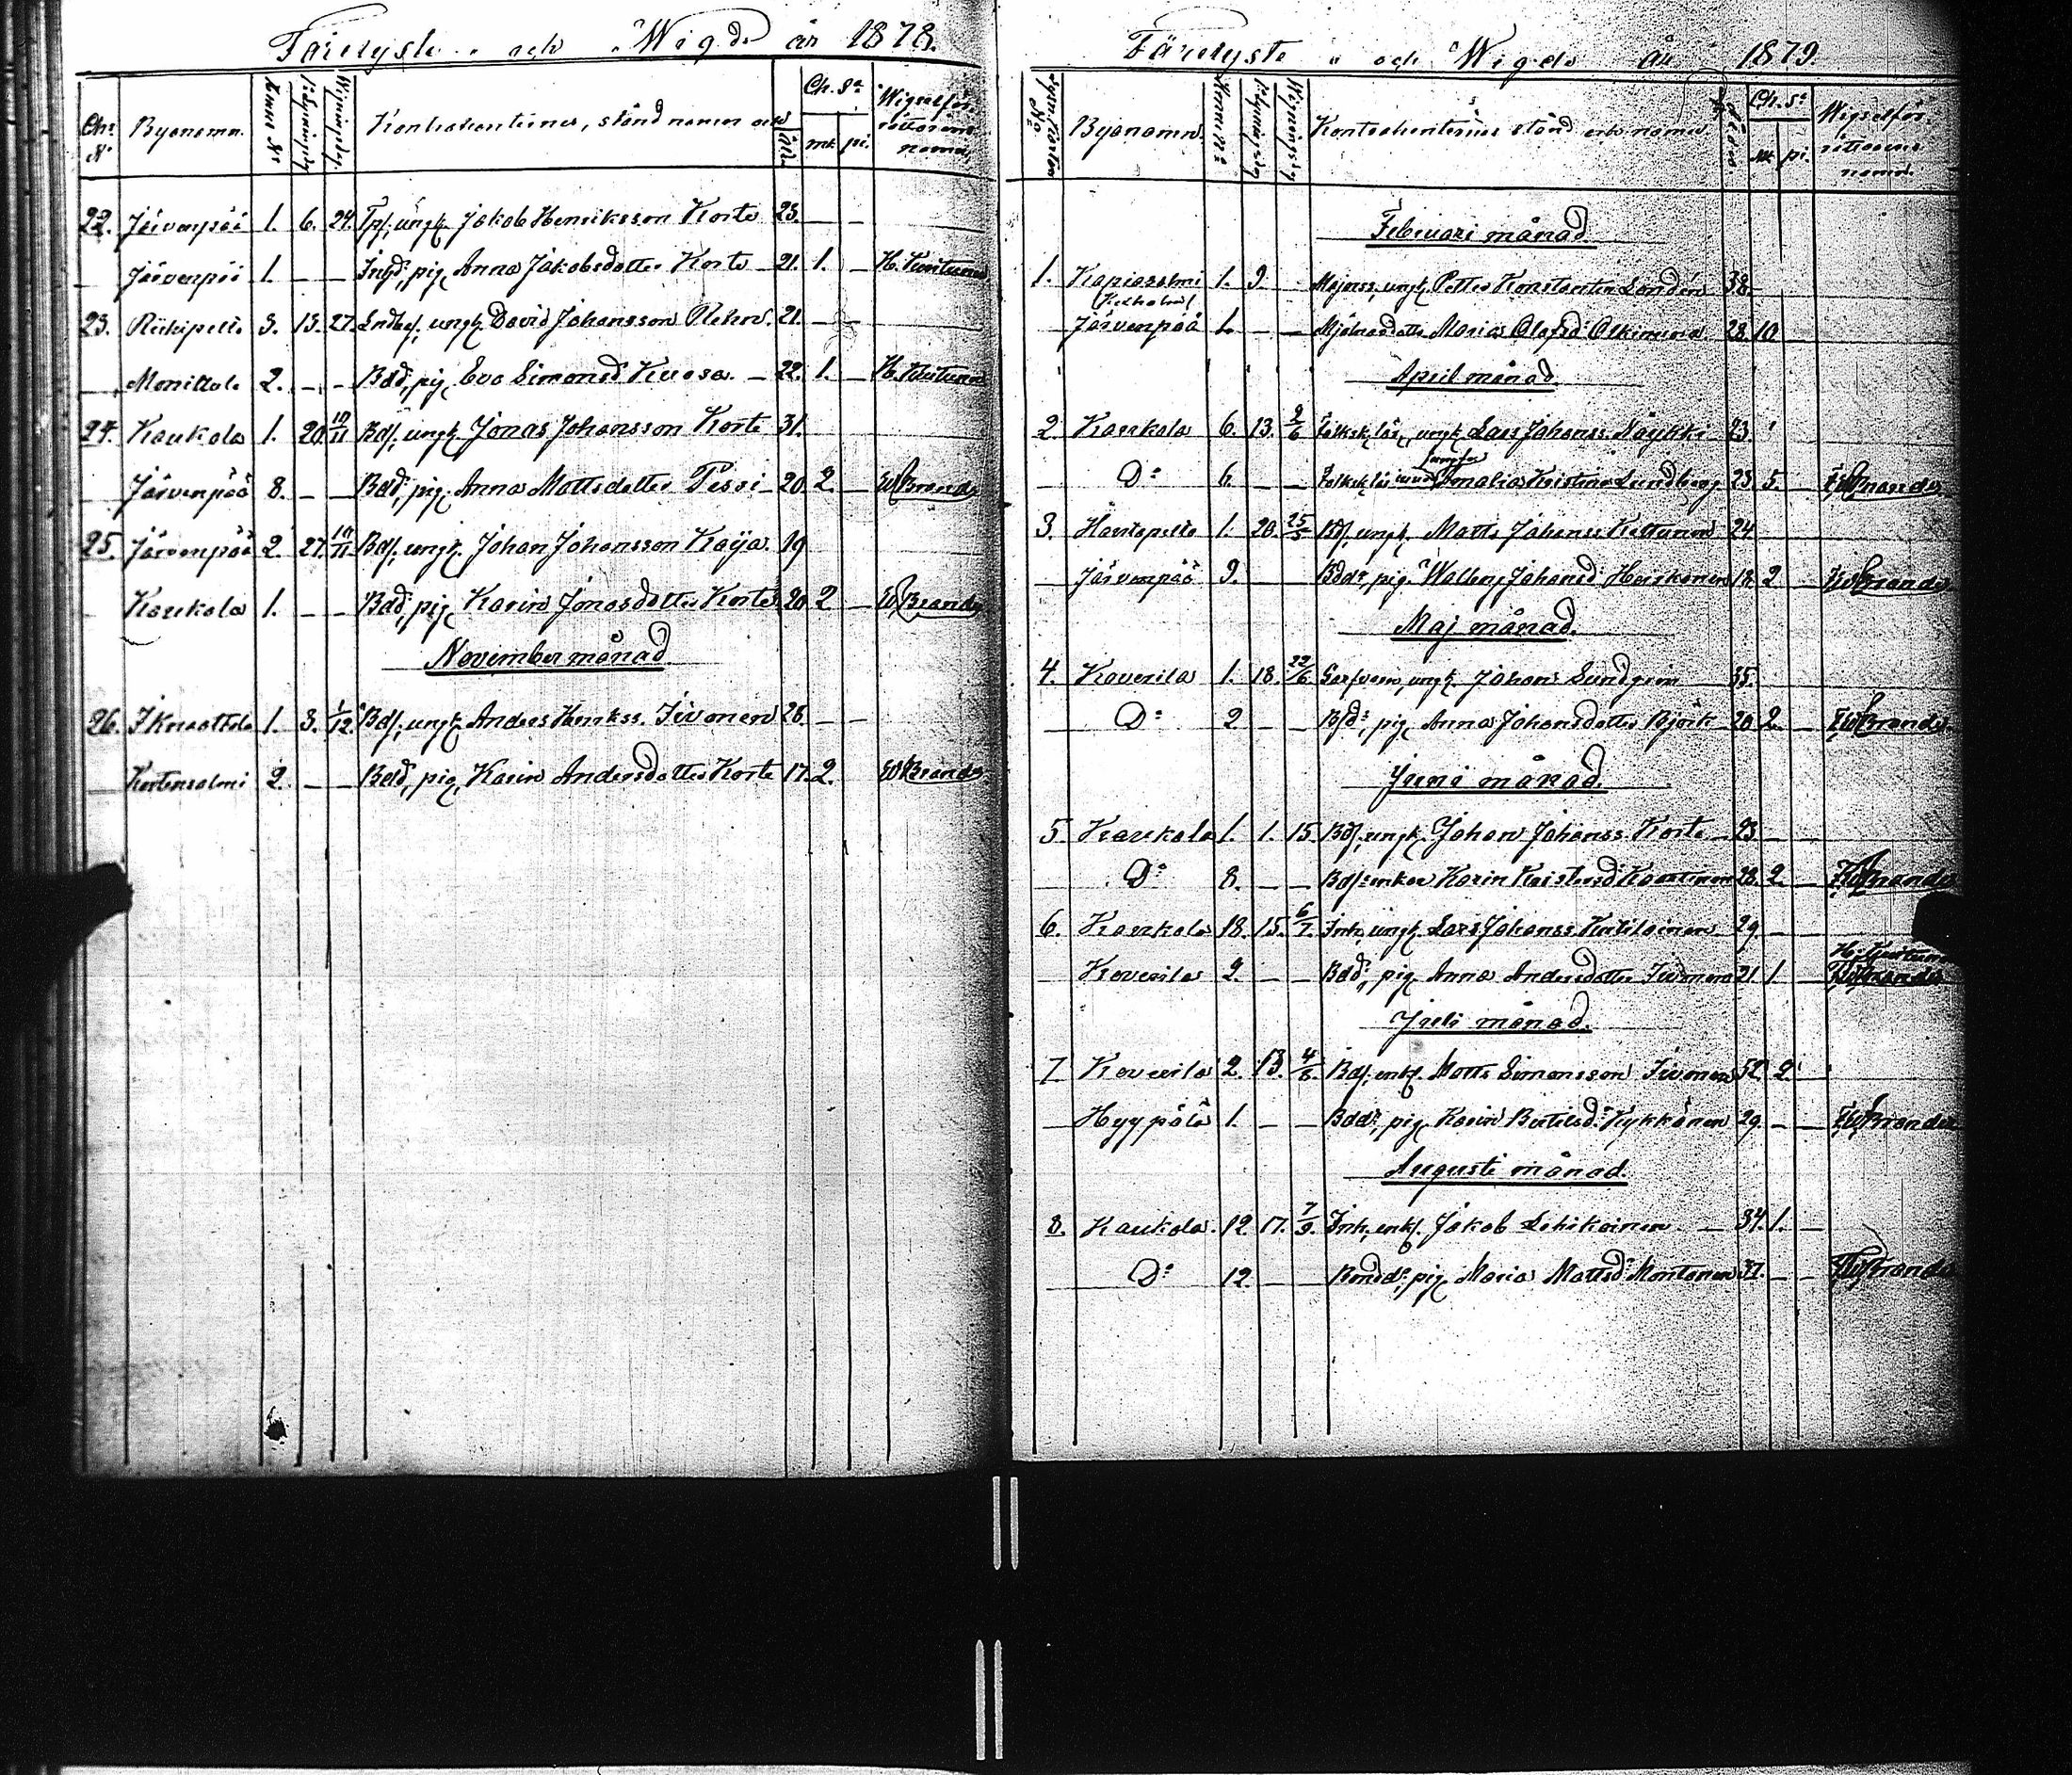 Färelyste och Wigde år 1878.
Chr. N° Byanamn. Hemm. N° Lysningsdag Wigningsdag. Kontrahenternes, stånd namn och Ålder Ch. Sa. mk pi. Wigselförrättarens namn.
22. Järvenpää 1. 6. 24. ungk. Jakob Henriksson Korte 23. — —
Järvenpää 1. — — pig. Anna Jakobsdotter Korte 21. 1. — H.
23. Riihipelto 3. 13. 27. ungk. David Johansson 21. — —
Monittala 2. — — Bdd, pig. Eva Simonsd. Kuosa — 22. 1. — H.
24. Kaukola 1. 20. 10/11 Bds, ungk. Jonas Johansson Korte 31.
Järvenpää 8. — — Bdd, pig. Anna Mattsdotter Pessi 20. 2. — Brander
25. Järvenpää 2. 27. 10/11 Bds, ungk. Johan Johansson Kaija. 19
Kaukola 1. — — Bdd, pig. Karin Jonasdotter Korte 20 2 — Brander
November månad
26. 1. 3. 1/12. Bds, ungk. Anders Henrikss. Iivonen 28. —
Kortensalmi 2. — — Bdd, pig. Karin Andersdotter Korte 17. 2. Brander
Färelyste och Wigde År 1879
N° Byanamn. Hemm. N° Lysningsdag Wigningsdag Kontrahenternes stånd och namn. Ålder Ch. Sa. mk pi. Wigselförrättarens namn.
Februari månad
1. Kapiasalmi 1. 9. ungk. Petter Konstantin Londén 38. —
(Kexholm)
Järvenpää 1. — — Maria Olofsd. 28. 10
April månad
2. Kaukola 6. 13. 2/6 ungk. Lars Johanss. Näykki 23.
D:o 6. — — Amalia Kristina Lundberg 23. 5. — Brander
3. Hantapelto 1. 20. 25/5 Bds, ungk. Matts Johanss. Kettunen 24
Järvenpää 9. Bdd, pig. Walborg Johansd. Heiskanen 18. 2 Brander
Maj månad.
4. Koverila 1. 18. 22/6 ungk. Johan Lundgren 35.
D:o 2 — — pig. Anna Johansdotter Björk 20 2. — Brander
Juni månad.
5 Kaukola 1. 1. 15. Bds, ungk. Johan Johanss. Korte 23 —
D:o 8. — — enkan Karin Kristersd. 28. 2. — Brander
6. Kaukola 18. 15. 6/7. Inh, ungk. Lars Johanss. Kutilainen 29. —
Koverila 2. — — Bdd, pig. Anna Andersdotter Iivonen 21. 1. — Brander
Juli månad.
7 Koverila 2. 13. 4/8. Bds, enkl. Matts Simonsson Iivonen 52 2.
Hyypölä 1. — — Bdd, pig. Karin Bertilsd. Kykkänen 29. — — Brander
Augusti månad.
8. Kaukola. 12. 17. 7/9. Inh, enkl. Jakob Lehikoinen — 34. 1. —
D:o 12. — — pig. Maria Mattsd. Montonen 37. — — Brander